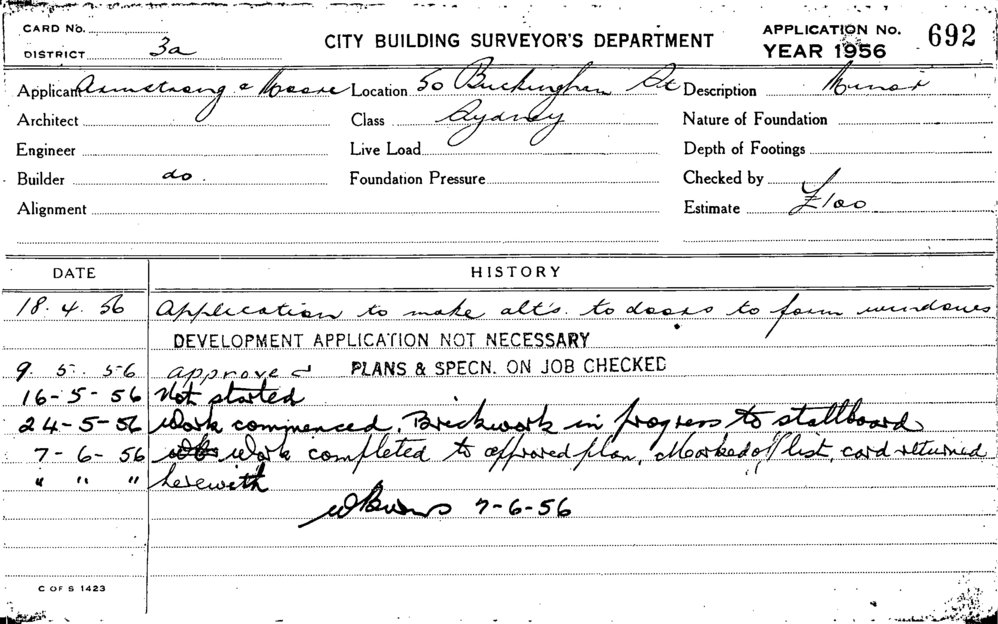 CARD No.
DISTRICT 3a
CITY BUILDING SURVEYOR'S DEPARTMENT
APPLICATION No. 692
YEAR 1956
Applicant Armstrong & Moore Location 50 Buckingham St Description Minor
Architect Class Sydney Nature of Foundation
Engineer Live Load Depth of Footings
Builder do. Foundation Pressure Checked by
Alignment Estimate £100
DATE HISTORY
18. 4. 56 Application to make alt's. to doors to form windows
DEVELOPMENT APPLICATION NOT NECESSARY
9. 5. 56 approved PLANS & SPECN. ON JOB CHECKED
16-5-56 Not started
24-5-56 Work commenced. Brickwork in progress to stallboard
7-6-56 Work completed to approved plan, Marked off list, card returned
" " " herewith
7-6-56
C OF S 1423